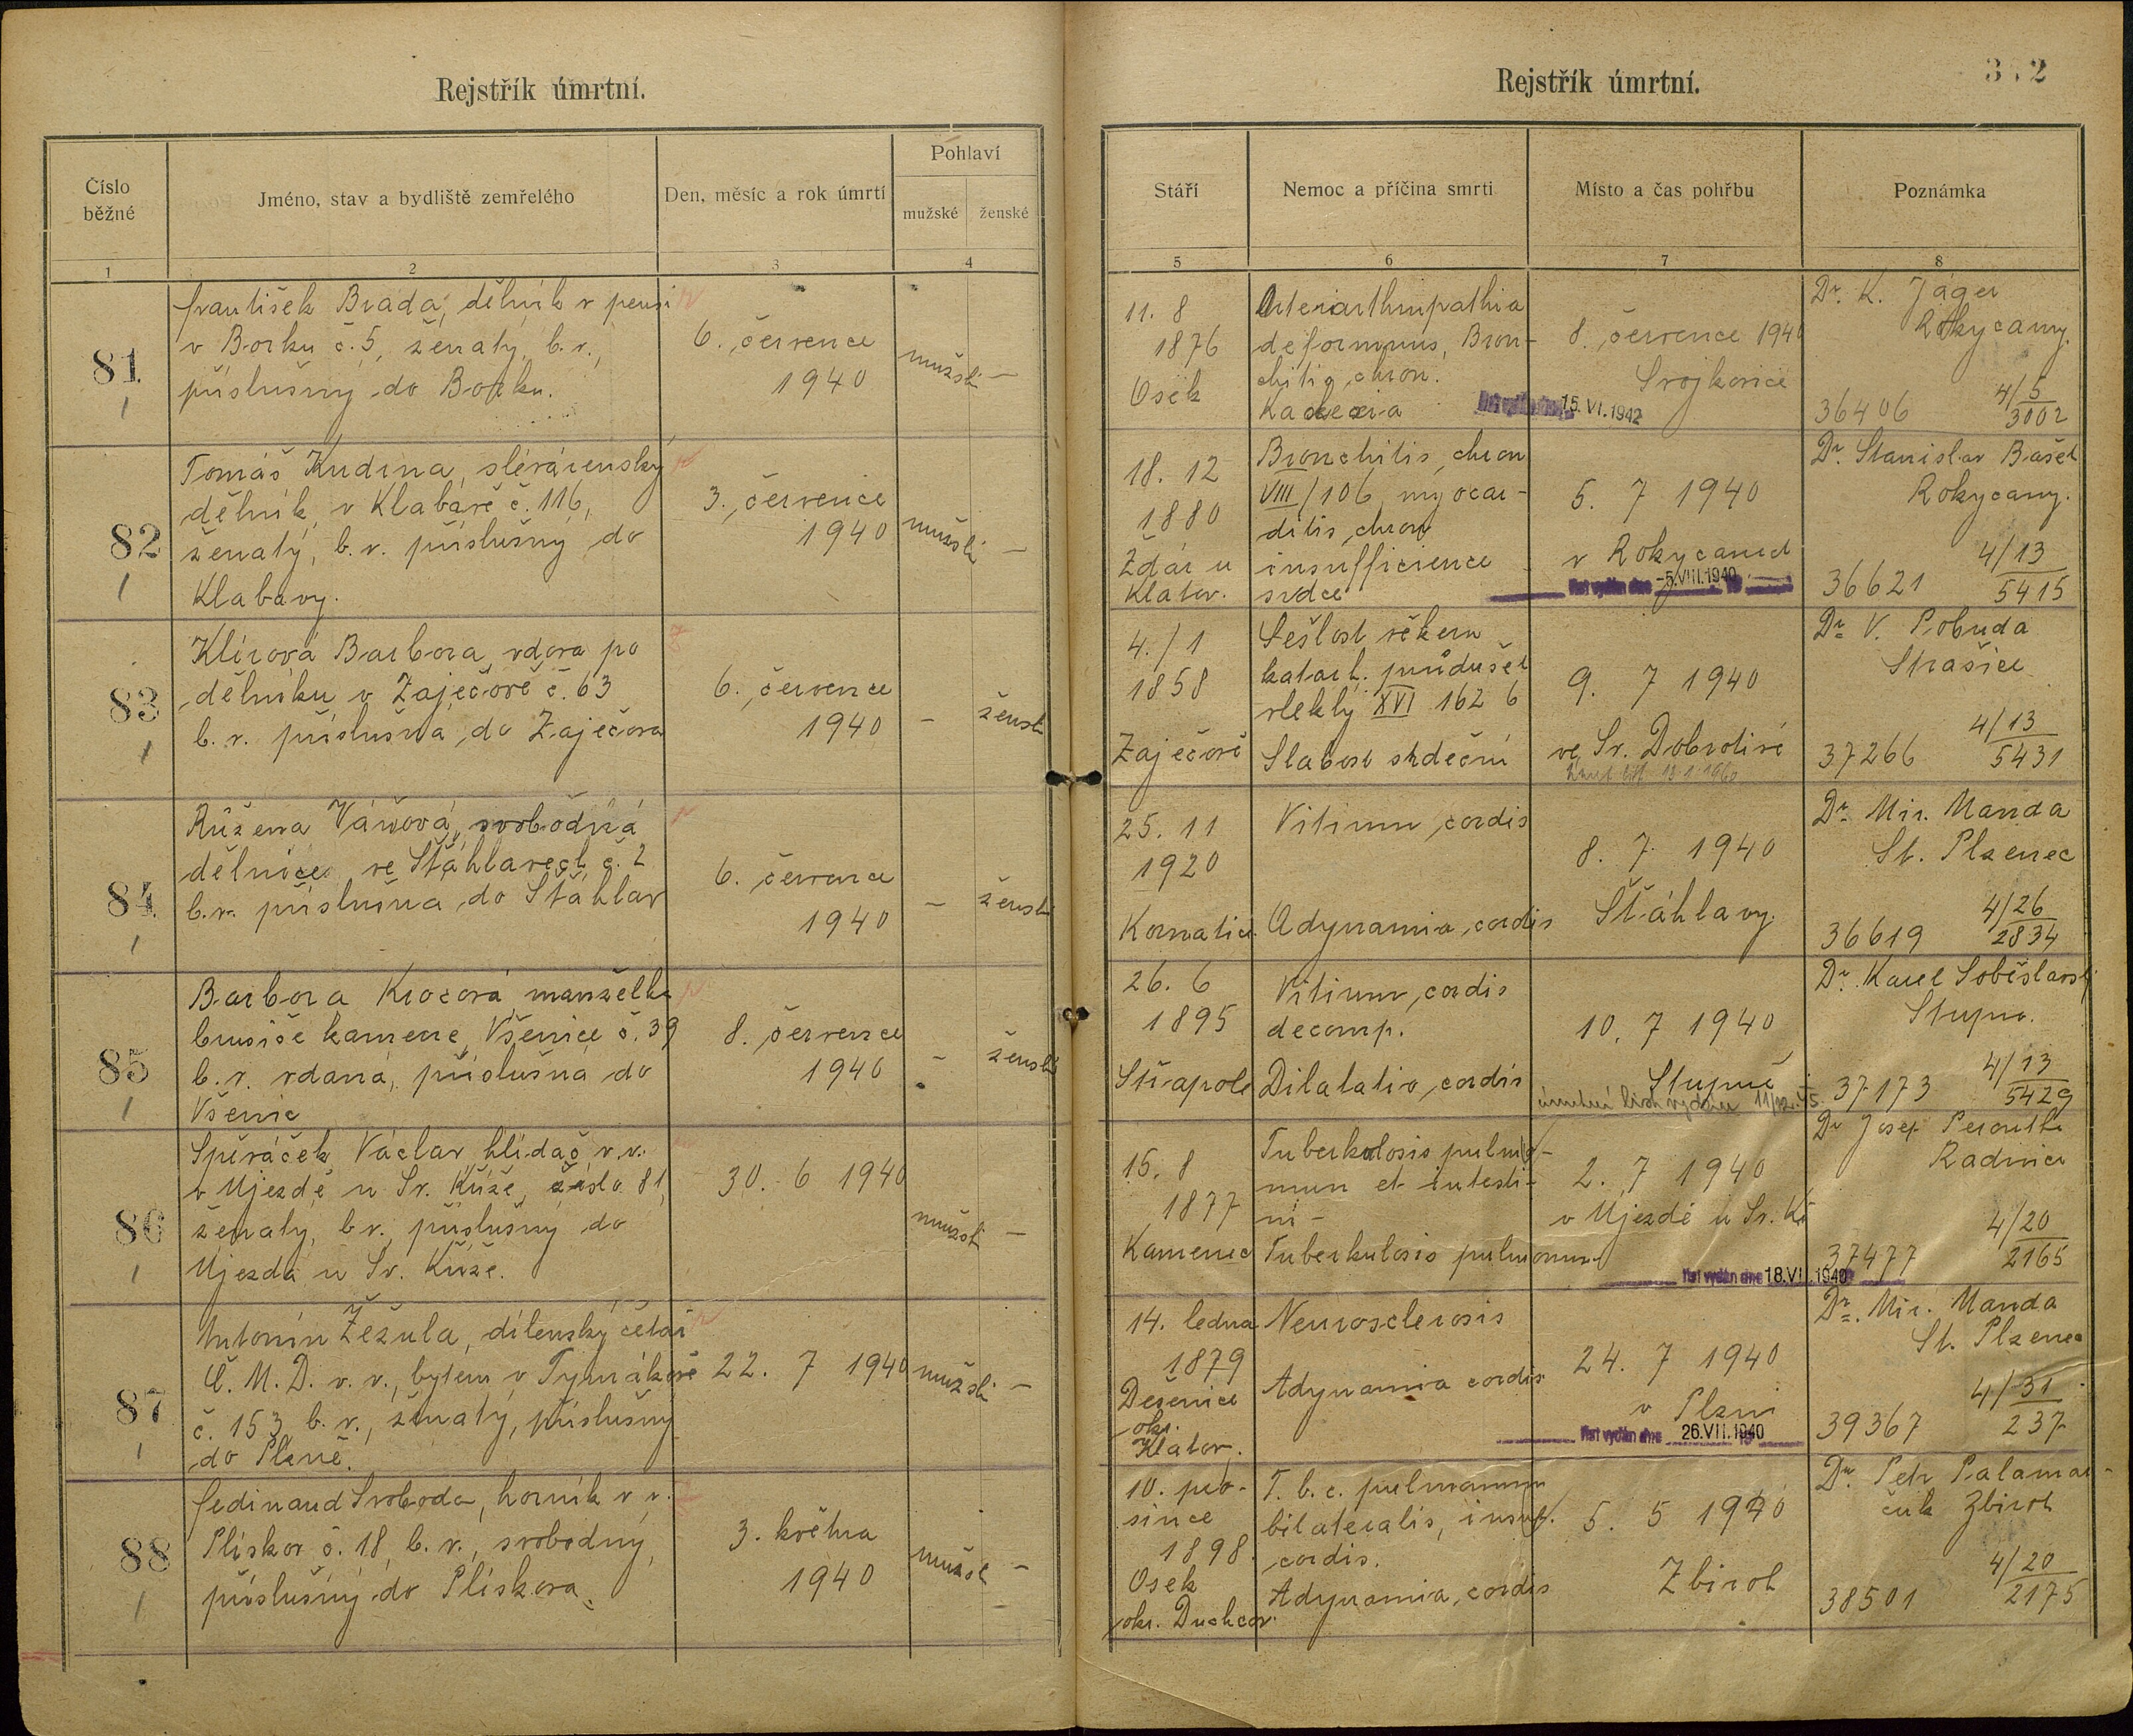 Rejstřík úmrtní.
Číslo běžné
Jméno, stav a bydliště zemřelého
Den, měsíc a rok úmrtí
Pohlaví
mužské
ženské
1
2
3
4
81
František Brada, dělník v pensi
v Borku č. 5, ženatý, b. v.,
příslušný do Borku.
6. července
1940
mužsk
–
82
Tomáš Kudrna, slévárenský
dělník v Klabavě č. 116,
ženatý, b. v. příslušný do
Klabavy.
3. července
1940
mužsk
–
83
Klírová Barbora, vdova po
dělníku v Zaječově č. 63
b. v. příslušná do Zaječova
6. července
1940
–
žensk
84
Růžena Váňová, svobodná
dělnice ve Šťáhlavech č. 2
b. v. příslušná do Šťáhlav
6. července
1940
–
žensk
85
Barbora Krocová, manželka
brusiče kamene, Všenice č. 39
b. v. vdaná, příslušná do
Všenic
8. července
1940
–
žensk
86
Spěváček Václav, hlídač v. v.
v Újezdě u Sv. Kříže, číslo 81,
ženatý, b v., příslušný do
Újezda u Sv. Kříže.
30. 6 1940
mužsk
–
87
Antonín Žežula, dílenský četař
Č. M. D. v. v., bytem v Tymákově
č. 153, b. v., ženatý, příslušný
do Plzně.
22. 7 1940
mužsk
–
88
Ferdinand Svoboda, horník v. v.
Plískov č. 18, b. v., svobodný,
příslušný do Plískova.
3. května
1940
mužsk
–
Rejstřík úmrtní.
Stáří
Nemoc a příčina smrti
Místo a čas pohřbu
Poznámka
5
6
7
8
11. 8
1876
Osek
deformans, Bron-
chitis chron.
Kachexia
8. července 1940
Svojkovice
15. VI. 1942
Dr. K. Jäger
Rokycany.
36406
4/5
3002
18. 12
1880
Ždár u
Klatov.
Bronchitis chron
VIII/106, myocar-
ditis chron
insufficience
srdce
5. 7 1940
v Rokycanech
list vydán dne -5.VIII.1940
Dr. Stanislav Bašek
Rokycany.
36621
4/13
5415
4./1
1858
Zaječově
Sešlost věkem
katarh. průdušek
vleklý XVI 162 b
Slabost srdeční
9. 7 1940
ve Sv. Dobrotivé
Dr. V. Pobuda
Strašice
37266
4/13
5431
25. 11
1920
Kornatice
Vitium cordis
Adynamia cordis
8. 7. 1940
Šťáhlavy.
Dr. Mir. Manda
St. Plzenec
36619
4/26
2834
26. 6
1895
Střapole
Vitium cordis
decomp.
Dilatatio cordis
10. 7 1940
Stupně
úmrtní list vydán 11/12.45.
Dr. Karel Soběslavsk
Stupno.
37173
4/13
5429
15. 8
1877
Kamenec
Tuberkulosis pulmo-
num et intesti-
ni –
Tuberkulosis pulmonum
2. 7 1940
v Újezdě u Sv. Kř
list vydán dne 18.VI. 1940
Dr Josef
Radnice
37477
4/20
2165
14. ledna
1879
Dešenice
okr.
Klatov.
Neurosclerosis
Adynamia cordis
24. 7 1940
v Plzni
list vydán dne 26.VII.1940
Dr. Mir. Manda
St. Plzenec
39367
4/31
237
10. pro-
since
1898.
Osek
okr. Duchcov.
T. b. c. pulmonum
bilateralis, insuf.
cordis.
Adynamia cordis
5. 5 1940
Zbiroh
Dr. Petr Palamar-
čuk Zbiroh
38501
4/20
2175